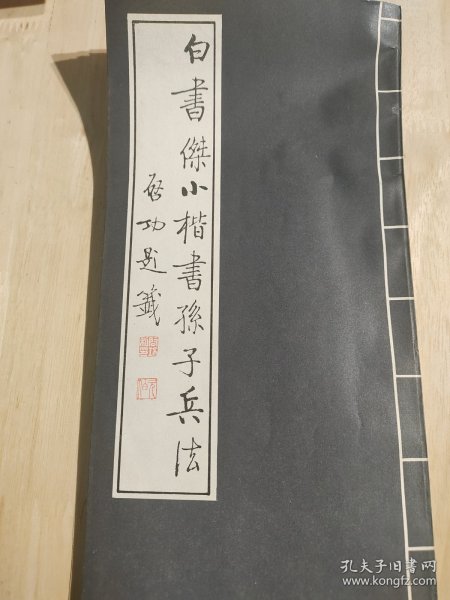 白書傑小楷書孫子兵法
啓功題籤
孔夫子旧书网
www.kongfz.com